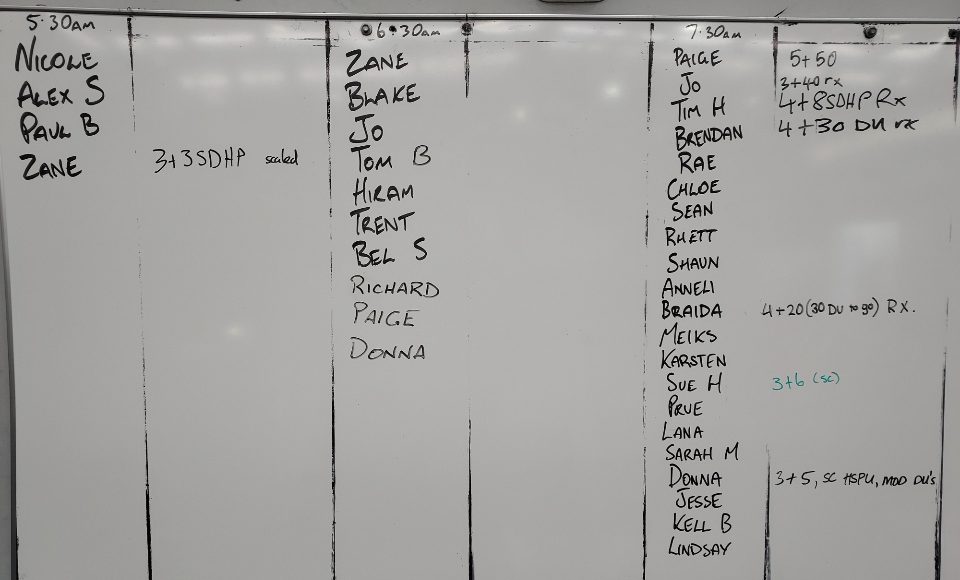 5:30AM
NICOLE
ALEX S
PAUL B
ZANE 3+3SDHP scaled
6:30AM
ZANE
BLAKE
JO
TOM B
HIRAM
TRENT
BEL S
RICHARD
PAIGE
DONNA
7:30AM
PAIGE 5+50
JO 3+40 rx
TIM H 4+8SDHP Rx
BRENDAN 4+30 DU rx
RAE
CHLOE
SEAN
RHETT
SHAUN
ANNELI
BRAIDA 4+20(30 DU to go) RX.
MEIKS
KARSTEN
SUE H 3+6 (sc)
PRUE
LANA
SARAH M
DONNA 3+5, SC HSPU, MOD DU's
JESSE
KELL B
LINDSAY